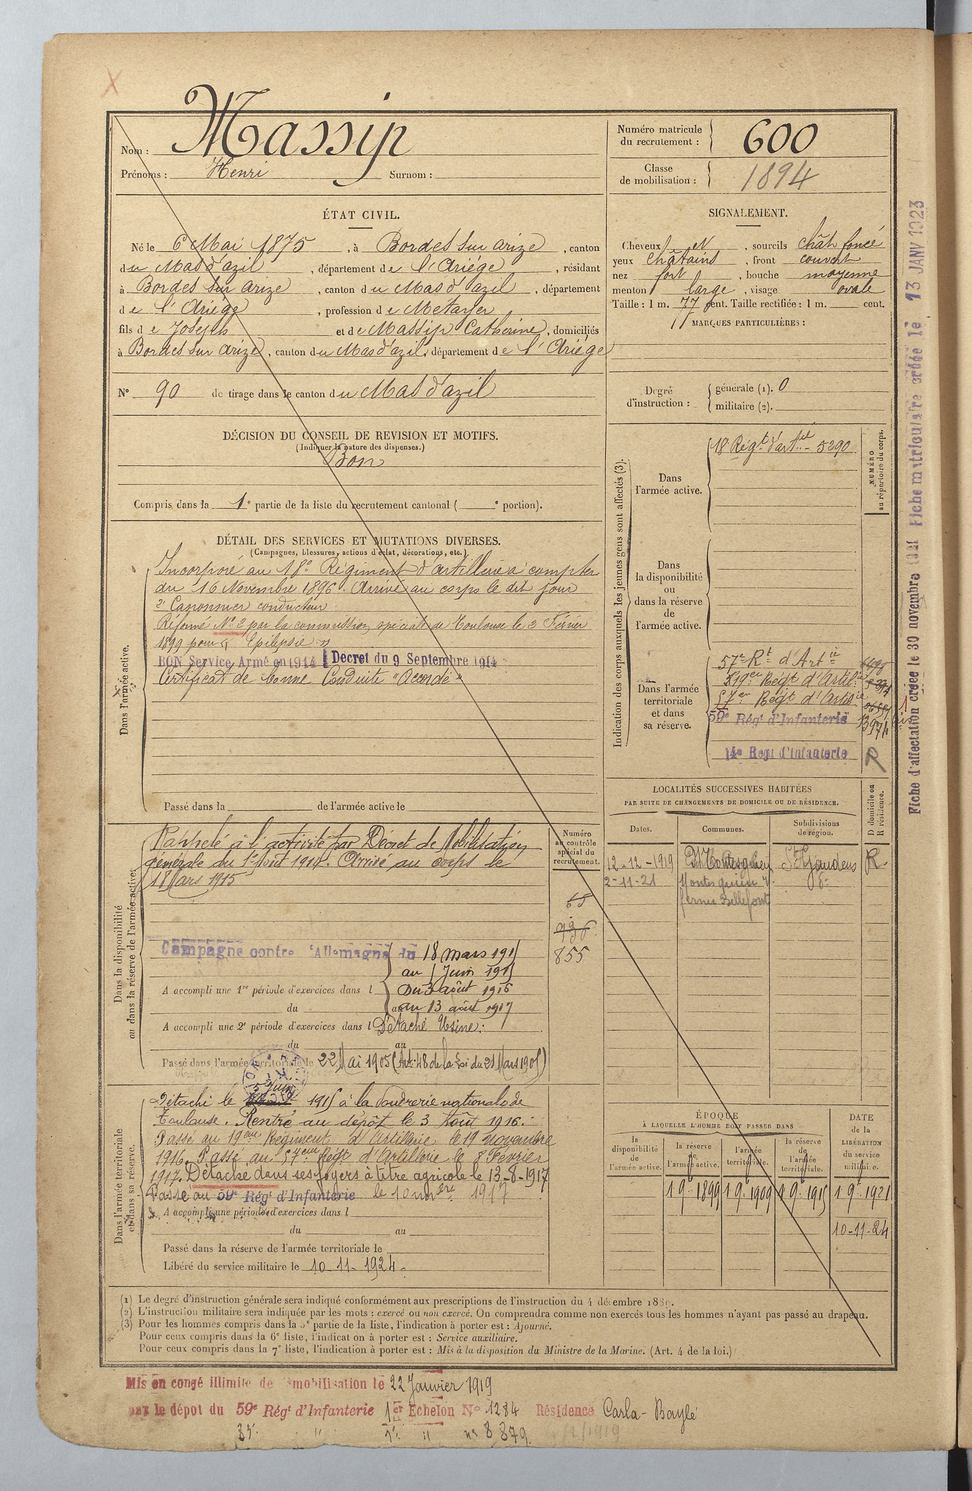 X
Nom : Massip
Prénoms : Henri Surnom :
Numéro matricule du recrutement : 600
Classe de mobilisation : 1894
ÉTAT CIVIL.
Né le 6 Mai 1875, à Bordes sur arize, canton
du Mas d'azil, département de l'Ariége, résidant
à Bordes sur arize, canton du Mas d'azil, département
de l'Ariége, profession de Métayer
fils de Joseph et de Massip Catherine, domiciliés
à Bordes sur arize, canton du Mas d'azil, département de l'Ariége
N° 90 de tirage dans le canton du Mas d'azil
SIGNALEMENT.
Cheveux N, sourcils chât foncé
yeux châtains, front couvert
nez fort, bouche moyenne
menton large, visage ovale
Taille : 1 m. 77 cent. Taille rectifiée : 1 m. cent.
MARQUES PARTICULIÈRES :
Degré d'instruction : générale (1). 0
militaire (2).
DÉCISION DU CONSEIL DE REVISION ET MOTIFS.
(Indiquer la nature des dispenses.)
Bon
Compris dans la 1e partie de la liste du recrutement cantonal ( e portion).
DÉTAIL DES SERVICES ET MUTATIONS DIVERSES.
(Campagnes, blessures, actions d'éclat, décorations, etc.)
Dans l'armée active.
Incorporé au 18e Régiment d'artillerie à compter
du 16 Novembre 1896. Arrivé au corps le dit jour
2e Canonnier conducteur.
Réformé N° 2 par la commission spéciale de Toulouse le 2 Février
1899 pour "Epilepsie"
BON Service Armé en 1914 Décret du 9 Septembre 1914
Certificat de bonne Conduite "Accordé"
Passé dans la de l'armée active le
Indication des corps auxquels les jeunes gens sont affectés (3).
NUMÉRO au répertoire du corps.
Dans l'armée active.
18 Régt d'artie - 5290
Dans la disponibilité ou dans la réserve de l'armée active.
Dans l'armée territoriale et dans sa réserve.
57e Rt d'Artie
Régt d'Artie
57e Régt d'Artie
59e Régt d'Infanterie
14e Régt d'Infanterie R
Dans la disponibilité ou dans la réserve de l'armée active.
Rappelé à l'activité par Décret de Mobilisation
générale du 1er août 1914. Arrivé au corps le
18 Mars 1915
Numéro au contrôle spécial du recrutement.
68
936
855
Campagne contre l'Allemagne du 18 mars 1915
au Juin 1915
A accompli une 1re période d'exercices dans l Du 3 août 1916
du au 13 août 1917
A accompli une 2e période d'exercices dans l Détaché Usine.
du au
Passé dans l'armée territoriale le 22 Mai 1905 (Art. 48 de la Loi du 21 Mars 1905)
LOCALITÉS SUCCESSIVES HABITÉES
PAR SUITE DE CHANGEMENTS DE DOMICILE OU DE RÉSIDENCE.
Dates. Communes. Subdivisions de région. D domicile ou R résidence.
12-12-1919 St Gaudens R
2-11-21 Montesquieu V.
Dans l'armée territoriale et dans sa réserve.
Détaché le 5 Juin 1915 à la Poudrerie nationale de
Toulouse. Rentré au dépôt le 3 Août 1916.
Passé au 19ème Régiment d'Artillerie le 19 novembre
1916. Passé au 57ème Régt d'Artillerie le 8 Février
1917. Détaché dans ses foyers à titre agricole le 13-8-1917
Passé au 59e Régt d'Infanterie le 10 nvbre 1917
A accompli une période d'exercices dans l
du au
Passé dans la réserve de l'armée territoriale le
Libéré du service militaire le 10-11-1924.
ÉPOQUE
À LAQUELLE L'HOMME DOIT PASSER DANS
la disponibilité de l'armée active. la réserve de l'armée active. l'armée territoriale. la réserve de l'armée territoriale.
DATE de la LIBÉRATION du service militaire.
1 9e 1899 1 9e 1909 1 9e 1915 1 9e 1921
10-11-24
(1) Le degré d'instruction générale sera indiqué conformément aux prescriptions de l'instruction du 4 décembre 1889.
(2) L'instruction militaire sera indiquée par les mots : exercé ou non exercé. On comprendra comme non exercés tous les hommes n'ayant pas passé au drapeau.
(3) Pour les hommes compris dans la 5e partie de la liste, l'indication à porter est : Ajourné.
Pour ceux compris dans la 6e liste, l'indication à porter est : Service auxiliaire.
Pour ceux compris dans la 7e liste, l'indication à porter est : Mis à la disposition du Ministre de la Marine. (Art. 4 de la loi.)
Mis en congé illimité de démobilisation le 22 Janvier 1919
par le dépôt du 59e Régt d'Infanterie 1er Echelon N° 1284 Résidence Carla-Bayle
n° 8379
Fiche d'affectation créée le 30 novembre 1921 Fiche matriculaire créée le 13 JANV 1923